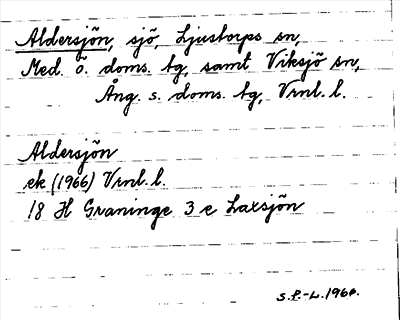 Aldersjön, sjö, Ljustorps sn,
Med. ö. doms. tg, samt Viksjö sn,
Ång. s. doms. tg, Vrnl. l.
Aldersjön
ek (1966) Vrnl. l.
18 H Graninge 3 e Laxsjön
S.F.-L. 1966.